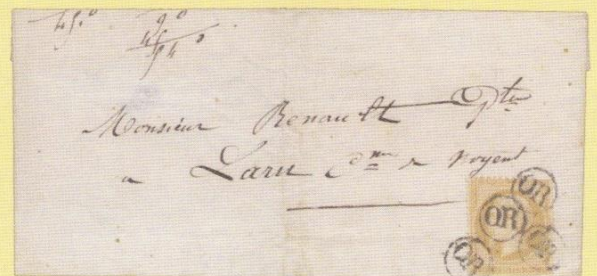 45.0
90
45
Monsieur Renault
a Laru Cne de Noyent
OR
OR
OR
OR